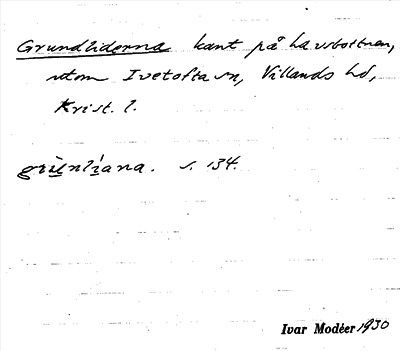 Grundliderna kant på havsbottnen,
utom Ivetofta sn, Villands hd,
Krist. l.
griùnlìana. s. 134.
Ivar Modéer 1930